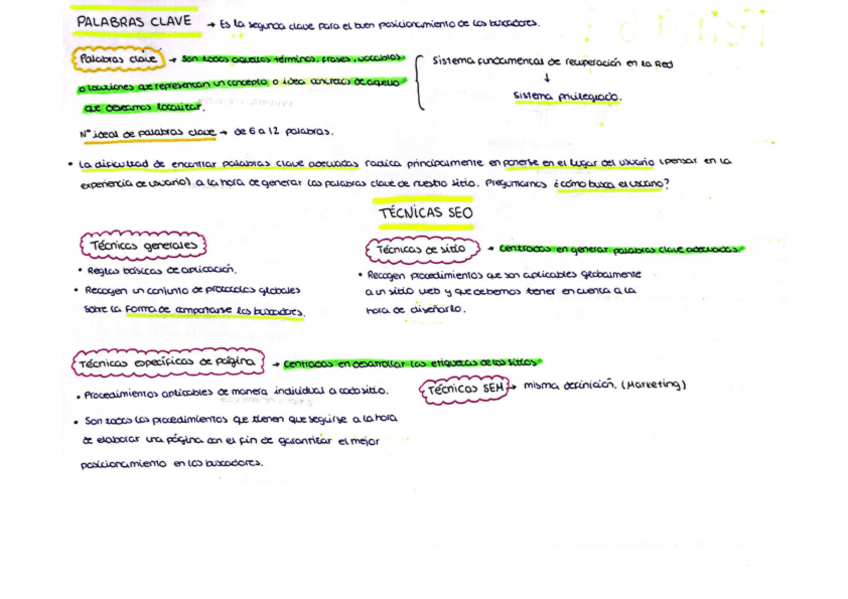 PALABRAS CLAVE → Es la segunda clave para el buen posicionamiento de los buscadores.
Palabras clave → son todos aquellos términos, frases, vocablos
o locuciones que representan un concepto o idea concretos de aquello
que deseamos localizar.
Sistema fundamental de recuperación en la Red
↓
Sistema privilegiado.
Nº ideal de palabras clave → de 6 a 12 palabras.
• La dificultad de encontrar palabras clave adecuadas radica principalmente en ponerse en el lugar del usuario (pensar en la
experiencia de usuario) a la hora de generar las palabras clave de nuestro sitio. Preguntarnos ¿cómo busca el usuario?
TÉCNICAS SEO
Técnicas generales
• Reglas básicas de aplicación.
• Recogen un conjunto de protocolos globales
sobre la forma de comportarse los buscadores.
Técnicas de sitio → centradas en generar palabras clave adecuadas.
• Recogen procedimientos que son aplicables globalmente
a un sitio web y que debemos tener en cuenta a la
hora de diseñarlo.
Técnicas específicas de página → centradas en desarrollar las etiquetas de los sitios
• Procedimientos aplicables de manera individual a cada sitio.
• Son todos los procedimientos que tienen que seguirse a la hora
de elaborar una página con el fin de garantizar el mejor
posicionamiento en los buscadores.
Técnicas SEM → misma definición. (Marketing)